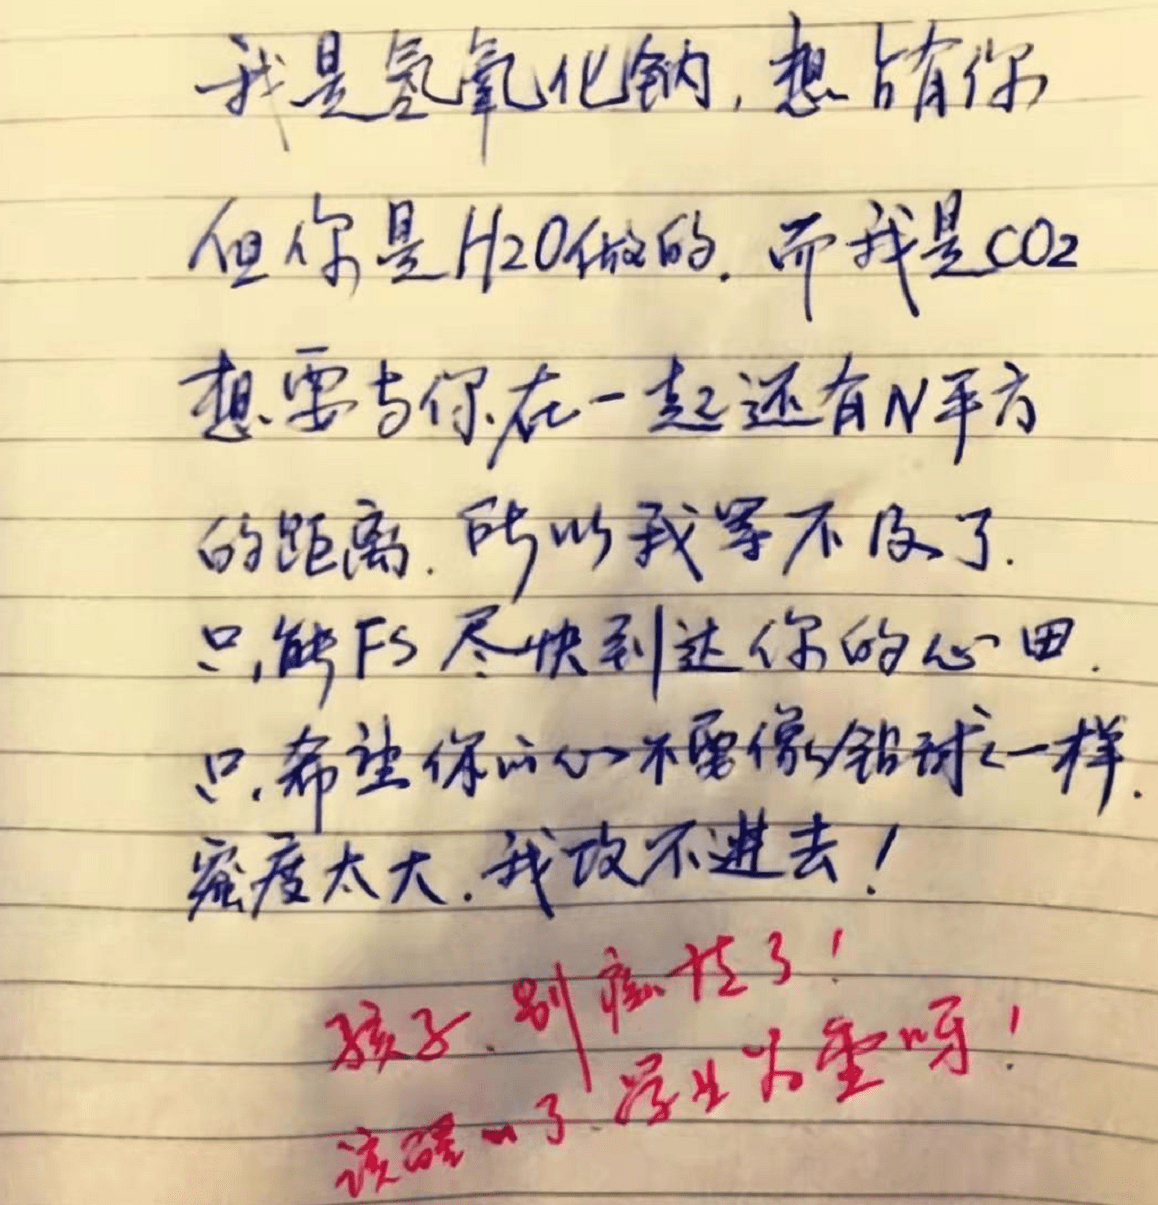 我是氢氧化钠,想占有你
但你是H2O做的.而我是CO2
想要与你在一起还有N平方
的距离.所以我等不及了.
只能FS尽快到达你的心田.
只希望你的心不要像铅球一样.
密度太大.我攻不进去!
孩子.别痴情了!
该醒醒了学业为重呀!